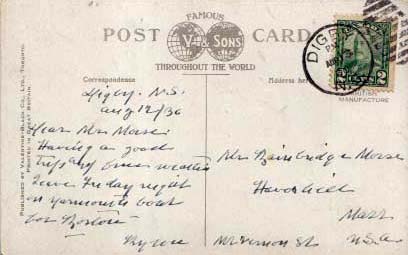 FAMOUS
POST CARD
V & SONS
THROUGHOUT THE WORLD
Correspondence
Address here
MANUFACTURE
PUBLISHED BY VALENTINE-BLACK CO., LTD., TORONTO.
PRINTED IN GREAT BRITAIN.
DIGBY
2 2
Digby, N.S.
Aug 12/36
Dear Mrs Morse:
Having a good
trip and fine weather
Leave Friday night
on Yarmouth boat
for Boston
Byron
Mrs Bainbridge Morse
Haverhill
Mass
Mt Vernon St U.S.A